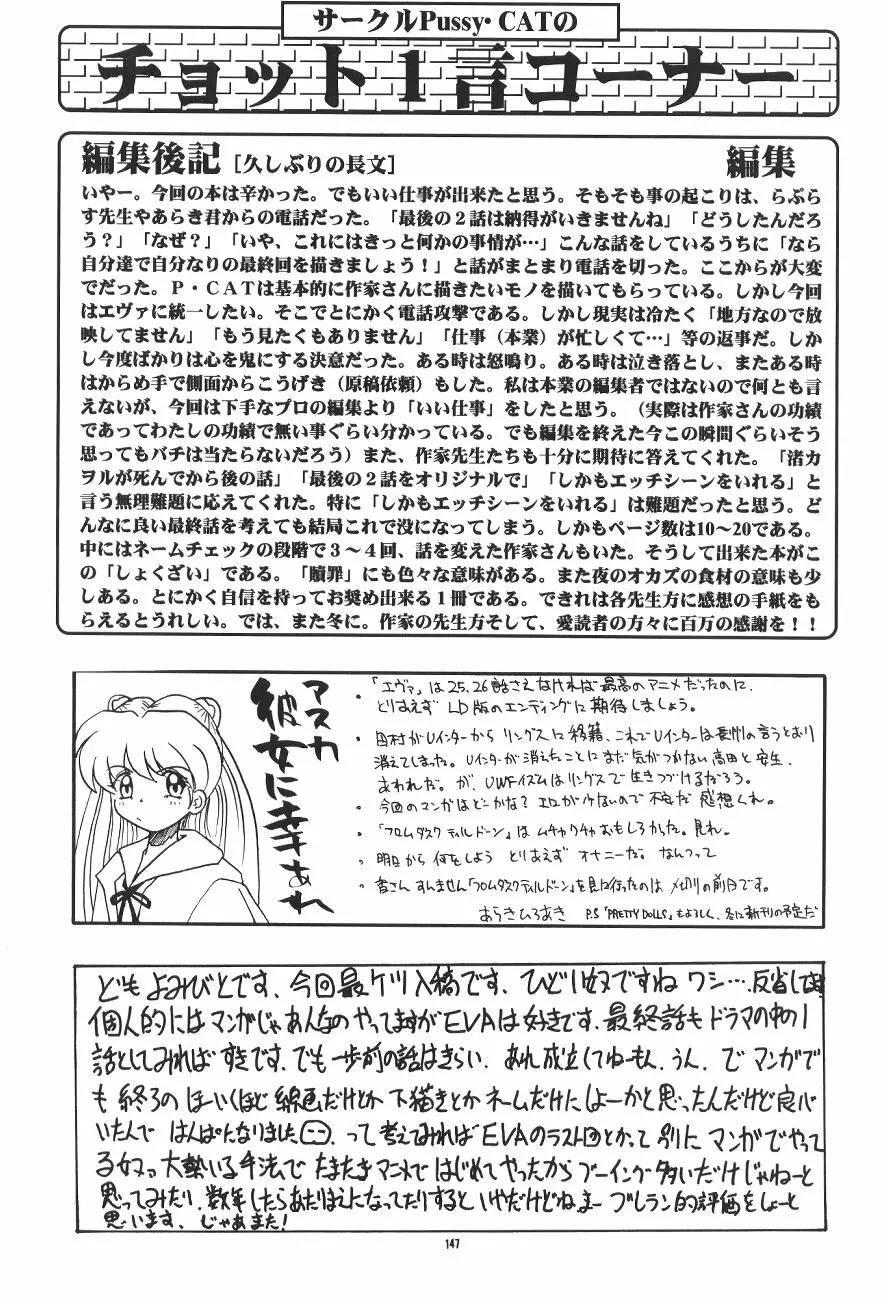 サークルPussy・CATの
チョット1言コーナー
編集後記［久しぶりの長文］ 編集
いやー。今回の本は辛かった。でもいい仕事が出来たと思う。そもそも事の起こりは、らぷら
す先生やあらき君からの電話だった。「最後の２話は納得がいきませんね」「どうしたんだろ
う？」「なぜ？」「いや、これにはきっと何かの事情が…」こんな話をしているうちに「なら
自分達で自分なりの最終回を描きましょう！」と話がまとまり電話を切った。ここからが大変
でだった。Ｐ・ＣＡＴは基本的に作家さんに描きたいモノを描いてもらっている。しかし今回
はエヴァに統一したい。そこでとにかく電話攻撃である。しかし現実は冷たく「地方なので放
映してません」「もう見たくもありません」「仕事（本業）が忙しくて…」等の返事だ。しか
し今度ばかりは心を鬼にする決意だった。ある時は怒鳴り。ある時は泣き落とし、またある時
はからめ手で側面からこうげき（原稿依頼）もした。私は本業の編集者ではないので何とも言
えないが、今回は下手なプロの編集より「いい仕事」をしたと思う。（実際は作家さんの功績
であってわたしの功績で無い事ぐらい分かっている。でも編集を終えた今この瞬間ぐらいそう
思ってもバチは当たらないだろう）また、作家先生たちも十分に期待に答えてくれた。「渚カ
ヲルが死んでから後の話」「最後の２話をオリジナルで」「しかもエッチシーンをいれる」と
言う無理難題に応えてくれた。特に「しかもエッチシーンをいれる」は難題だったと思う。ど
んなに良い最終話を考えても結局これで没になってしまう。しかもページ数は10～20である。
中にはネームチェックの段階で３～４回、話を変えた作家さんもいた。そうして出来た本がこ
の「しょくざい」である。「贖罪」にも色々な意味がある。また夜のオカズの食材の意味も少
しある。とにかく自信を持ってお奨め出来る１冊である。できれは各先生方に感想の手紙をも
らえるとうれしい。では、また冬に。作家の先生方そして、愛読者の方々に百万の感謝を！！
アスカ
彼女に幸あれ
・「エヴァ」は25、26話さえなければ最高のアニメだったのに、
とりあえず LD版のエンディングに期待しましょう。
・田村がUインターから リングスに移籍、これでUインターは長州の言うとおり
消えてしまった。Uインターが消えたことにまだ気がつかない高田と安生、
あわれだ。が、UWFイズムはリングスで生きつづけるだろう。
・今回のマンガはどーかな？ エロが少ないので不安だ 感想くれ。
・「フロムダスクティルドーン」は ムチャクチャおもしろかった。見れ。
・明日から 何をしよう とりあえず オナニーだ。なんつって
・皆さん すんません「フロムダスクティルドーン」を見に行ったのは 〆切りの前日です。
あらきひろあき P.S「PRETTY DOLLS」もよろしく、冬に新刊の予定だ
ども よみびとです、今回最ケツ入稿です、ひどい奴ですね ワシ…、反省してます
個人的にはマンガじゃあんなのやってますがEVAは好きです、最終話もドラマの中の1
話としてみればすきです、でも一歩前の話はきらい、あれ成立してねーもん、うん、で マンガで
も 終ろの ほーいくほど 線画だけとか 下描きとか ネームだけにしよーかと思ったんだけど良心
いたんで はんぱになりました、って 考えてみれば EVAのラスト回とかって 別に マンガでやって
る奴ァ大勢いる手法で たまたまアニメで はじめてやったから ブーイング多いだけじゃねーと
思ってみたり、数年したらあたりまえになってたりすると いやだけどね、まー ブレラン的評価をしよーと
思います、じゃあまた！
147